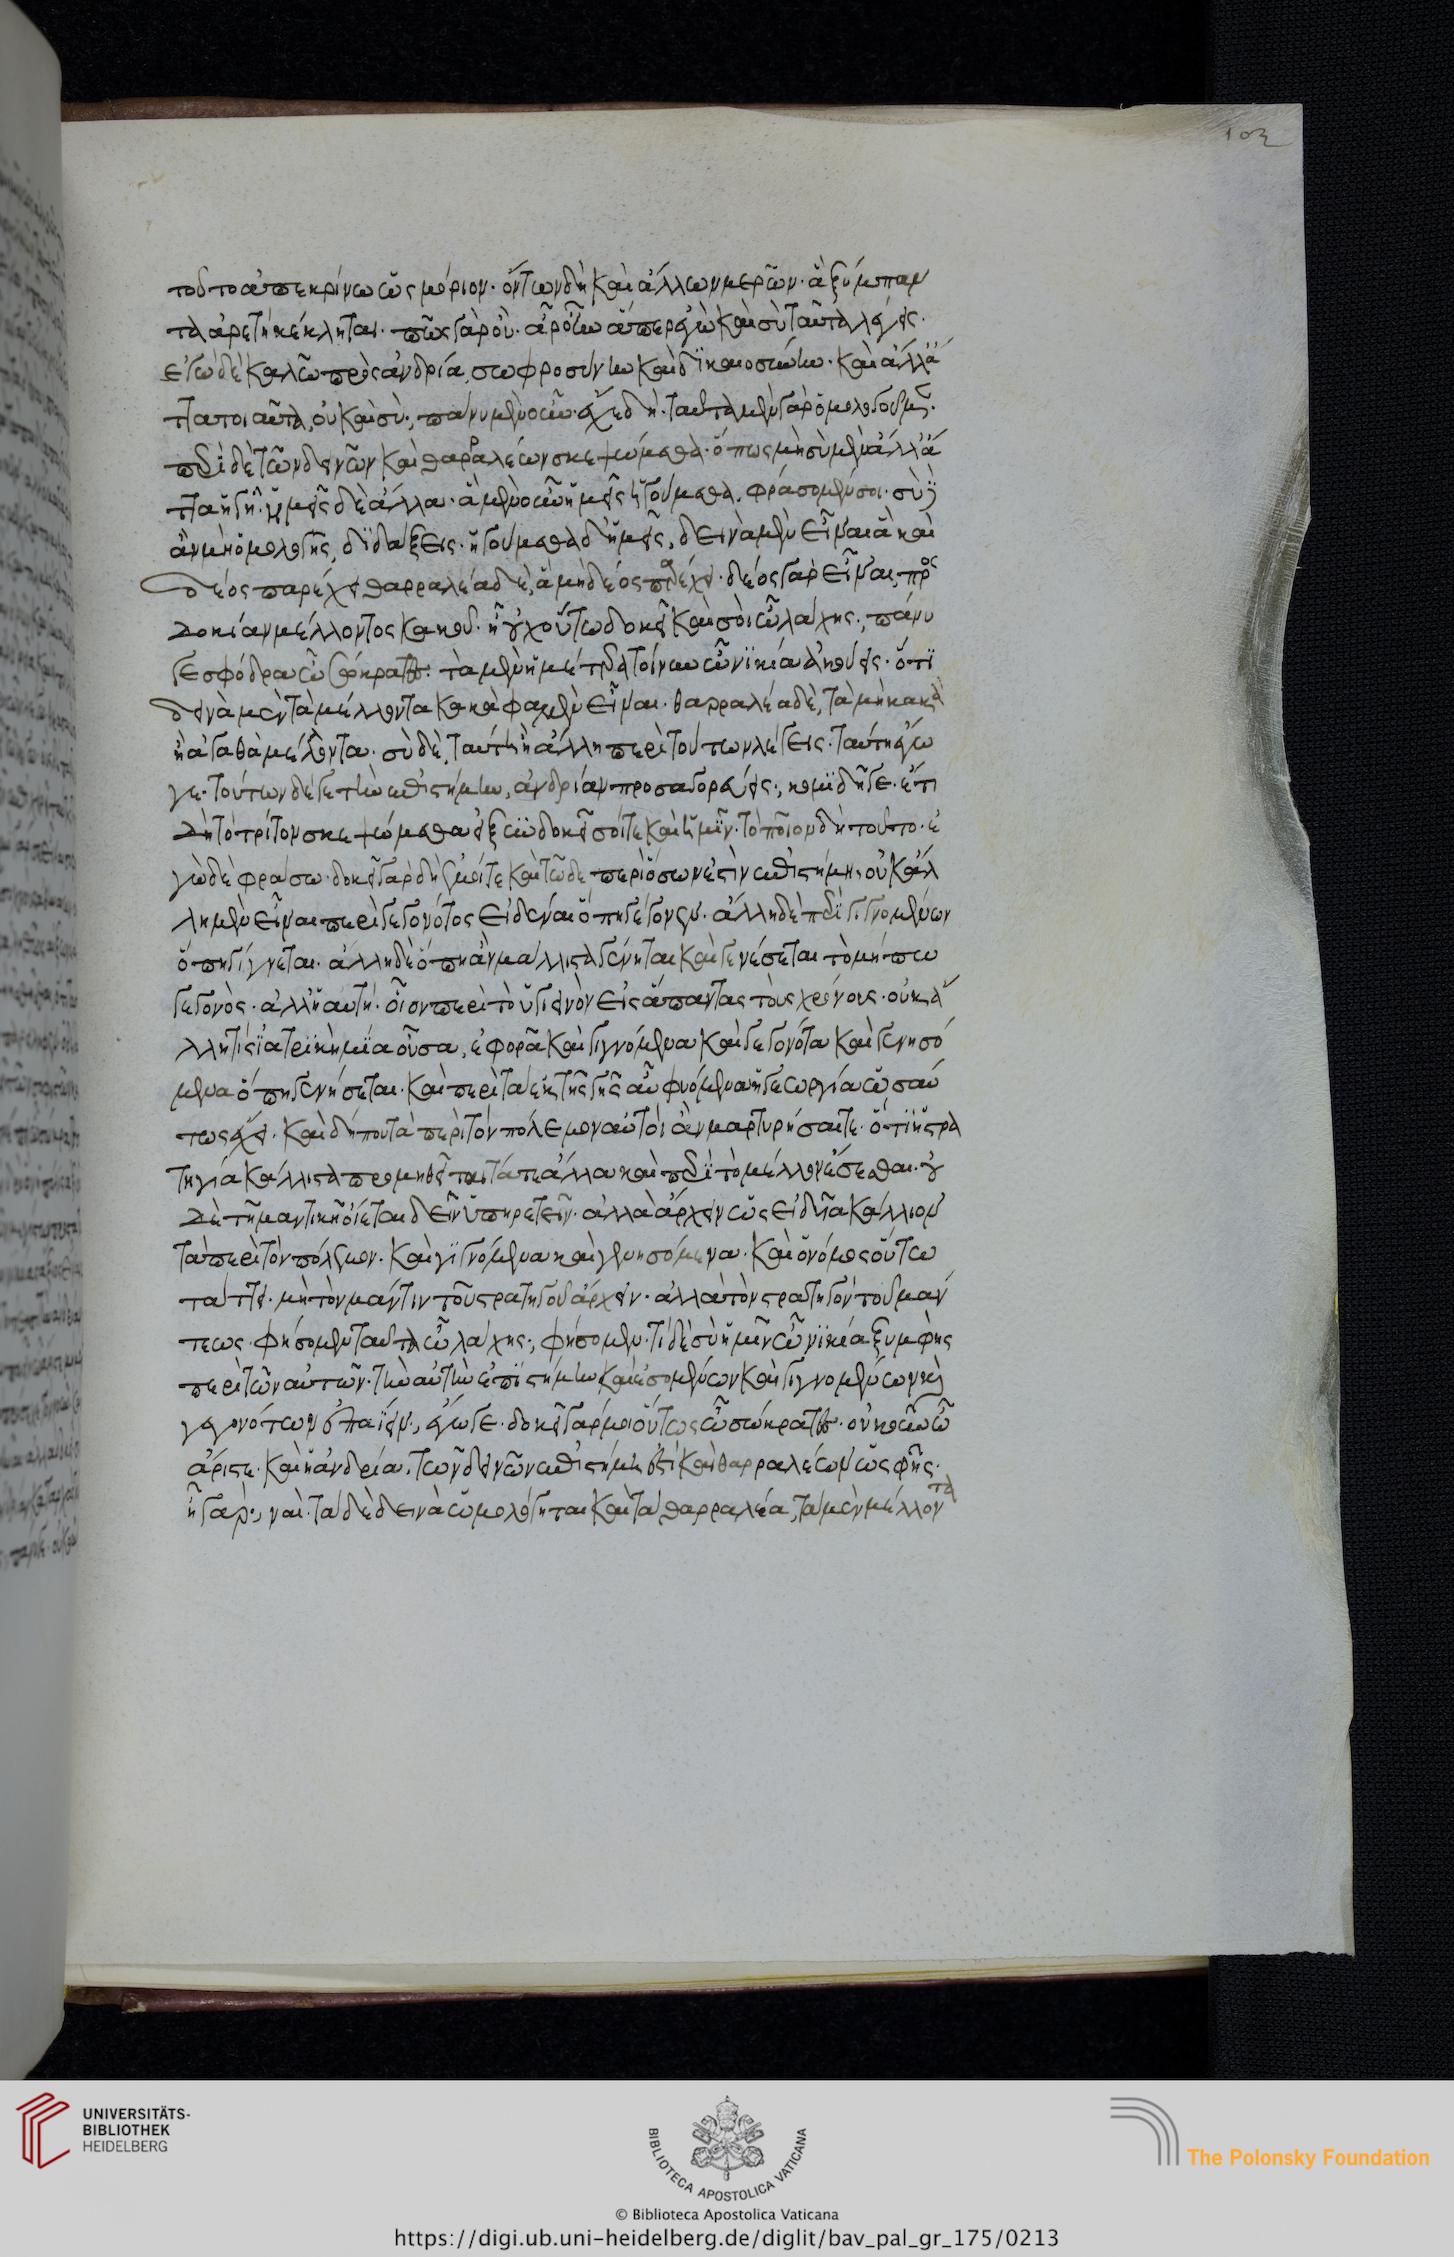 103
τοῦτο ἀπεκρίνω ὡς μόριον· ὄντων δὴ καὶ ἄλλων μερῶν· ἃ ξύμπαν
τα ἀρετὴ κέκληται· πῶς γὰρ οὔ· ἆρ' οὖν ἅπερ ἐγὼ καὶ σὺ ταῦτα λέγεις·
ἐγὼ δὲ καλῶ πρὸς ἀνδρία, σωφροσύνην καὶ δικαιοσύνην· καὶ ἄλλ' ἄ
ττα τοιαῦτα, οὐ καὶ σύ·, πάνυ μὲν οὖν· ἔχε δή· ταῦτα μὲν γὰρ ὁμολογοῦμεν·
περὶ δὲ τῶν δεινῶν καὶ θαρραλέων σκεψώμεθα· ὅπως μὴ σὺ μὲν ἄλλ' ἄ
ττα ἡγῇ· ἡμεῖς δὲ ἄλλα· ἃ μὲν οὖν ἡμεῖς ἡγούμεθα, φράσομέν σοι· σὺ
ἂν μὴ ὁμολογῇς, διδάξεις· ἡγούμεθα δ' ἡμεῖς, δεινὰ μὲν εἶναι ἃ καὶ
δέος παρέχει θαρραλέα δὲ, ἃ μὴ δέος παρέχει· δέος γὰρ εἶναι προς
δοκίαν μέλλοντος κακοῦ· ἢ οὐχ οὕτω δοκεῖ καὶ σοὶ ὦ λάχης·, πάνυ
γε σφόδρα ὦ σώκρατες· τὰ μὲν ἡμέτερα τοίνυν ὦ νικία ἀκούεις· ὅτι
δεινὰ μὲν τὰ μέλλοντα κακὰ φαμὲν εἶναι· θαρραλέα δὲ, τὰ μὴ κακὰ
ἢ ἀγαθὰ μέλλοντα· σὺ δὲ, ταύτῃ ἢ ἄλλη περὶ τούτων λέγεις· ταύτη ἔγω
γε· τούτων δέ γε τὴν ἐπιστήμην, ἀνδρίαν προσαγορεύεις·, κομιδῇ γε· ἔτι
δὴ τὸ τρίτον σκεψώμεθα εἰ ξυνδοκεῖ σοί τε καὶ ἡμῖν· τὸ ποῖον δὴ τοῦτο· ἐ
γὼ δὲ φράσω· δοκεῖ γὰρ δὴ ἐμοί τε καὶ τῶδε περὶ ὅσων ἐστὶν ἐπιστήμη, οὐκ ἄλ
λη μὲν εἶναι περὶ γεγονότος εἰδέναι ὅπη γέγονεν· ἄλλη δὲ περὶ γιγνομένων
ὅπη γίγνεται· ἄλλη δὲ ὅπη ἂν μάλλιστα γένηται καὶ γενέσεται τὸ μήπω
γεγονὸς· ἀλλ' ἡ αὐτή· οἷον περὶ τὸ ὑγιεινὸν εἰς ἅπαντας τοὺς χρόνους· οὐκ ἄ
λλη τίς ἰατρικὴ μία οὖσα, ἐφορᾶ καὶ γιγνόμενα καὶ γεγονότα καὶ γενησό
μενα ὅπη γενήσεται· καὶ περὶ τὰ ἐκ τῆς γῆς αὖ φυόμενα ἡ γεωργία ὡσαύ
τως ἔχει· καὶ δήπου τὰ περὶ τὸν πόλεμον αὐτοὶ ἂν μαρτυρήσαιτε· ὅτι ἡ στρα
τηγία κάλλιστα προμηθεῖται τά τε ἄλλα καὶ περὶ τὸ μέλλον ἔσεσθαι· οὐ
δὲ τῇ μαντικῇ οἴεται δεῖν ὑπηρετεῖν· ἀλλὰ ἄρχειν ὡς εἰδυῖα κάλλιον
τὰ περὶ τὸν πόλεμον· καὶ γιγνόμενα καὶ γενησόμενα· καὶ ὁ νόμος οὕτω
τάττει· μὴ τὸν μάντιν τοῦ στρατηγοῦ ἄρχειν· ἀλλὰ τὸν στρατηγὸν τοῦ μάν
τεως· φήσομεν ταῦτα ὦ λάχης·, φήσομεν· τί δὲ σὺ ἡμῖν ὦ νικία ξυμφῂς
περὶ τῶν αὐτῶν· τὴν αὐτὴν ἐπιστήμην καὶ ἐσομένων καὶ γιγνομένων καὶ
γεγονότων ἐπαΐειν·, ἔγωγε· δοκεῖ γάρ μοι οὕτως ὦ σώκρατες· οὐκοῦν ὦ
ἄριστε· καὶ ἡ ἀνδρία, τῶν δεινῶν ἐπιστήμη ἐστὶ καὶ θαρραλέων ὡς φῄς·
ἦ γάρ·, ναί· τὰ δὲ δεινὰ ὡμολόγηται καὶ τὰ θαρραλέα, τὰ μὲν μέλλοντα
UNIVERSITÄTS-
BIBLIOTHEK
HEIDELBERG
BIBLIOTECA APOSTOLICA VATICANA
The Polonsky Foundation
© Biblioteca Apostolica Vaticana
https://digi.ub.uni-heidelberg.de/diglit/bav_pal_gr_175/0213